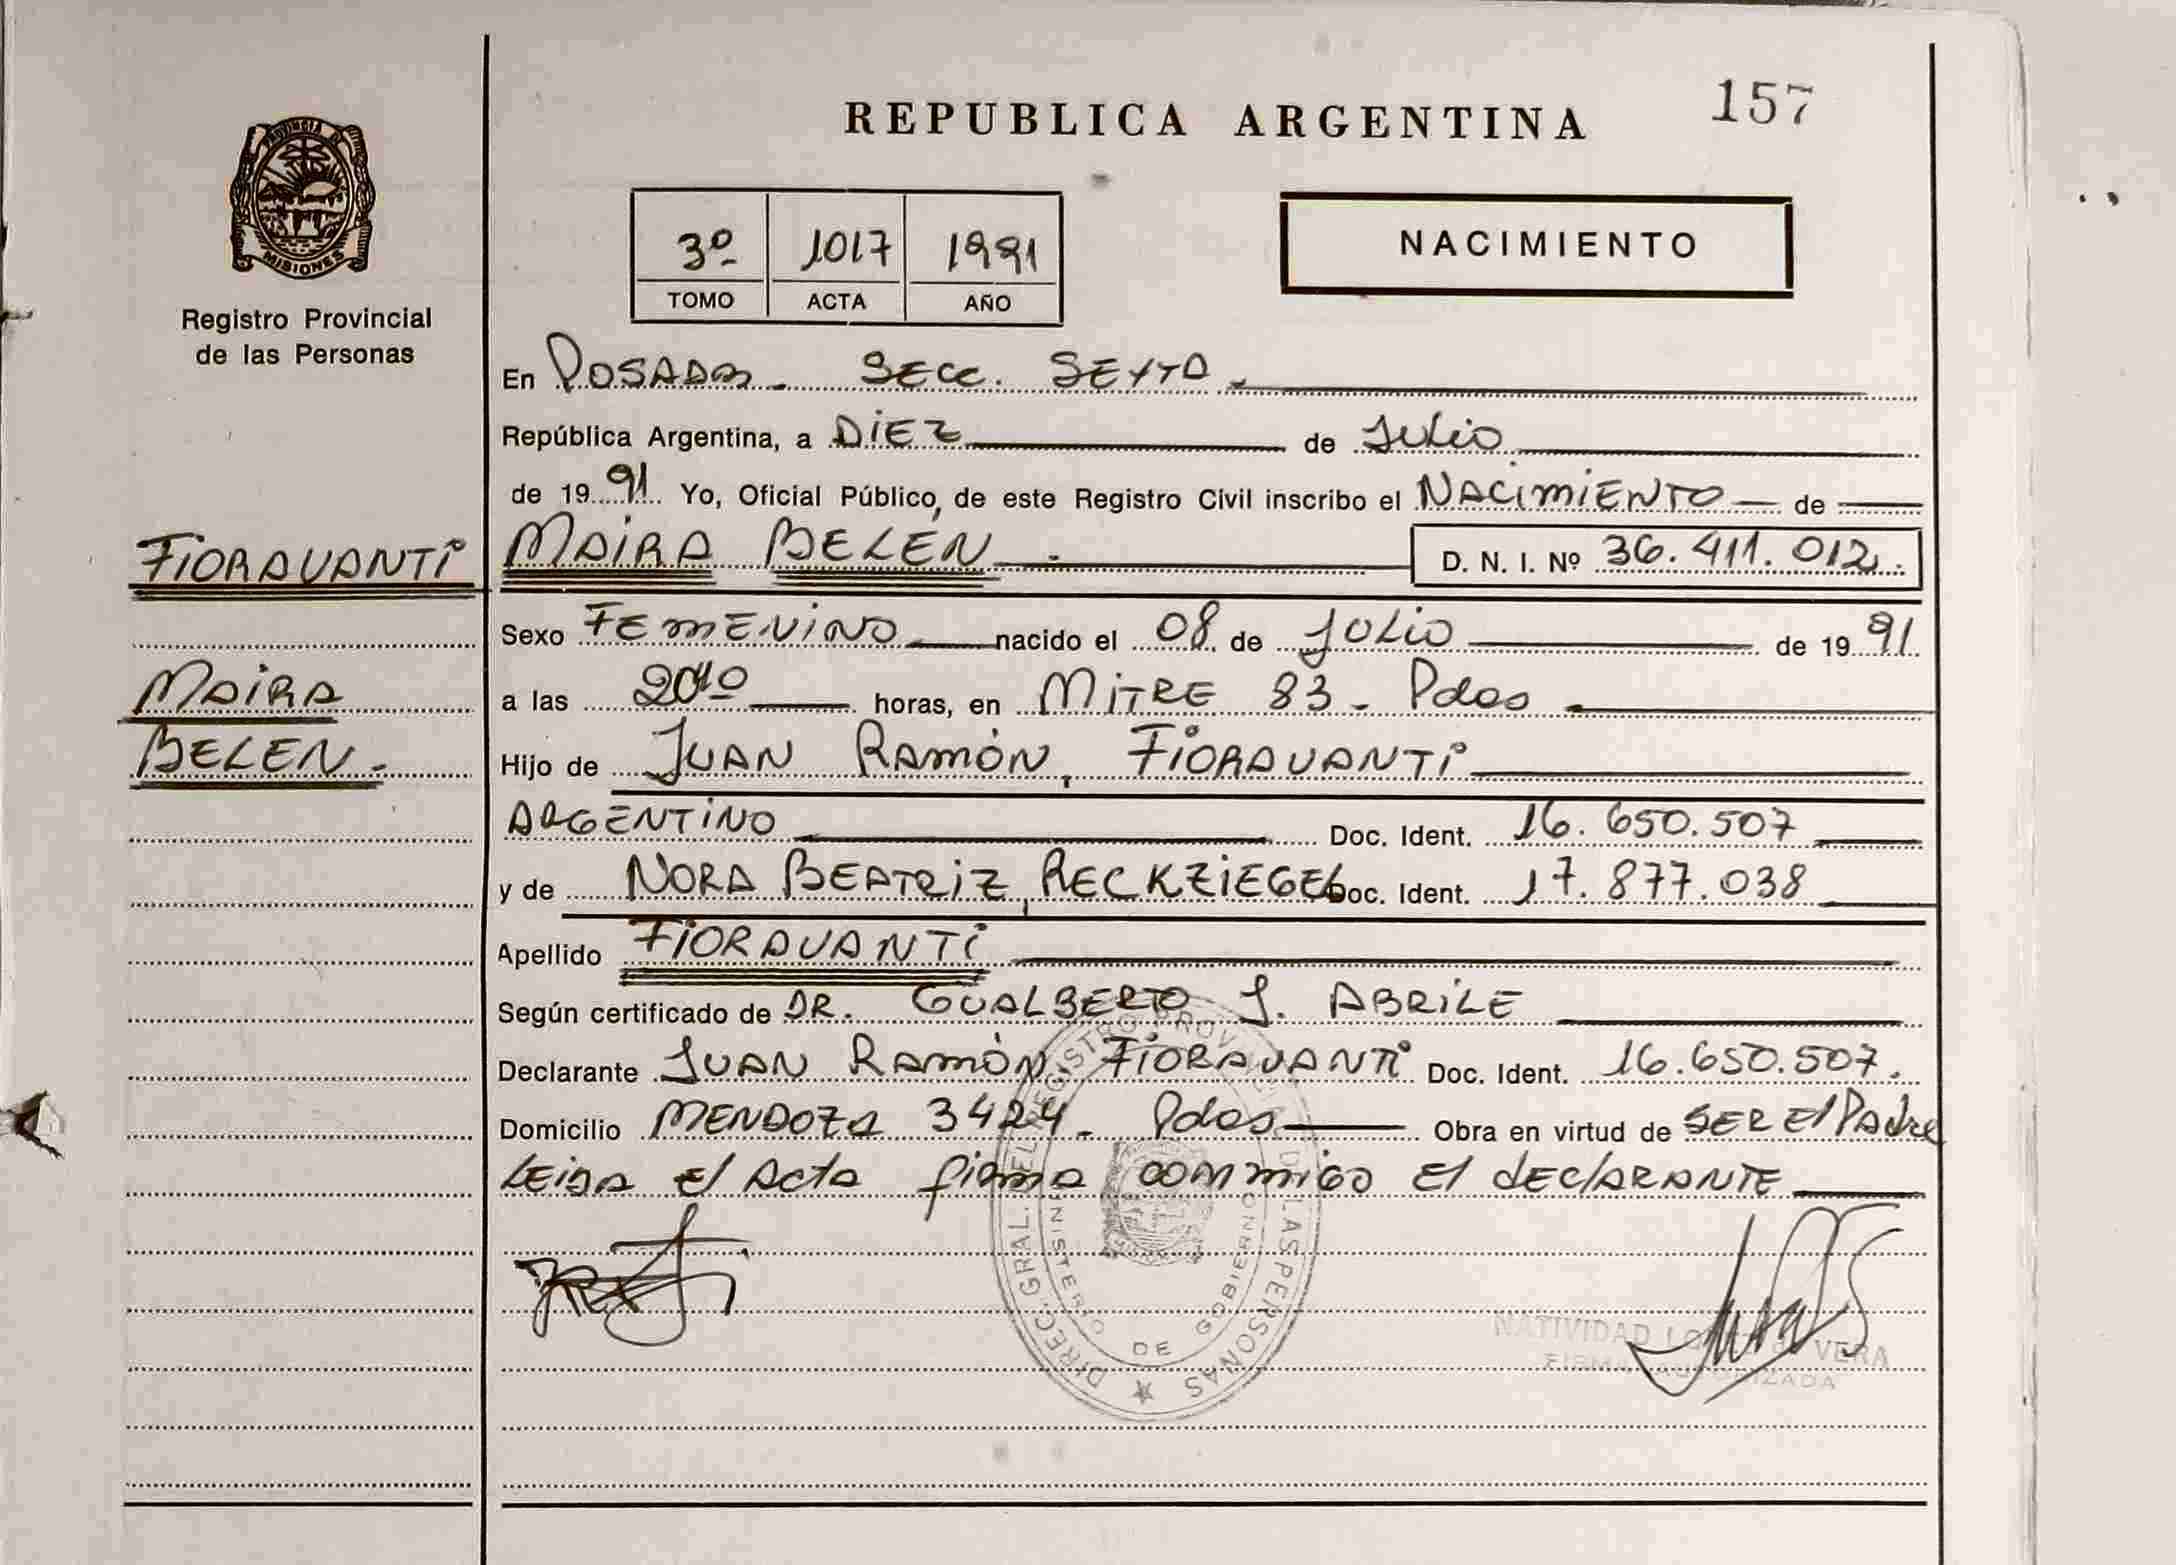 REPUBLICA ARGENTINA
157
PROVINCIA DE
MISIONES
Registro Provincial
de las Personas
3º 1017 1991
TOMO ACTA AÑO
NACIMIENTO
En POSADAS. SECC. SEXTA.
República Argentina, a DIEZ de JULIO
de 1991 Yo, Oficial Público, de este Registro Civil inscribo el NACIMIENTO de
FIORAVANTI
MAIRA BELEN
D. N. I. Nº 36.411.012.
Sexo FEMENINO nacido el 08 de JULIO de 1991
MAIRA
a las 2010 horas, en MITRE 83 - Pdas
BELEN.
Hijo de JUAN RAMÓN, FIORAVANTI
ARGENTINO Doc. Ident. 16.650.507
y de NORA BEATRIZ, RECKZIEGEL Doc. Ident. 17.877.038
Apellido FIORAVANTI
Según certificado de DR. GUALBERTO J. ABRILE
Declarante JUAN RAMÓN, FIORAVANTI Doc. Ident. 16.650.507.
Domicilio MENDOZA 3424 - Pdas Obra en virtud de SER El Padre
LEIDA El Acta firma conmigo El dEClARANTE
DIREC. GRAL. DEL REGISTRO PROV. DE LAS PERSONAS
MINISTERIO DE GOBIERNO
NATIVIDAD VERA
FIRMA AUTORIZADA